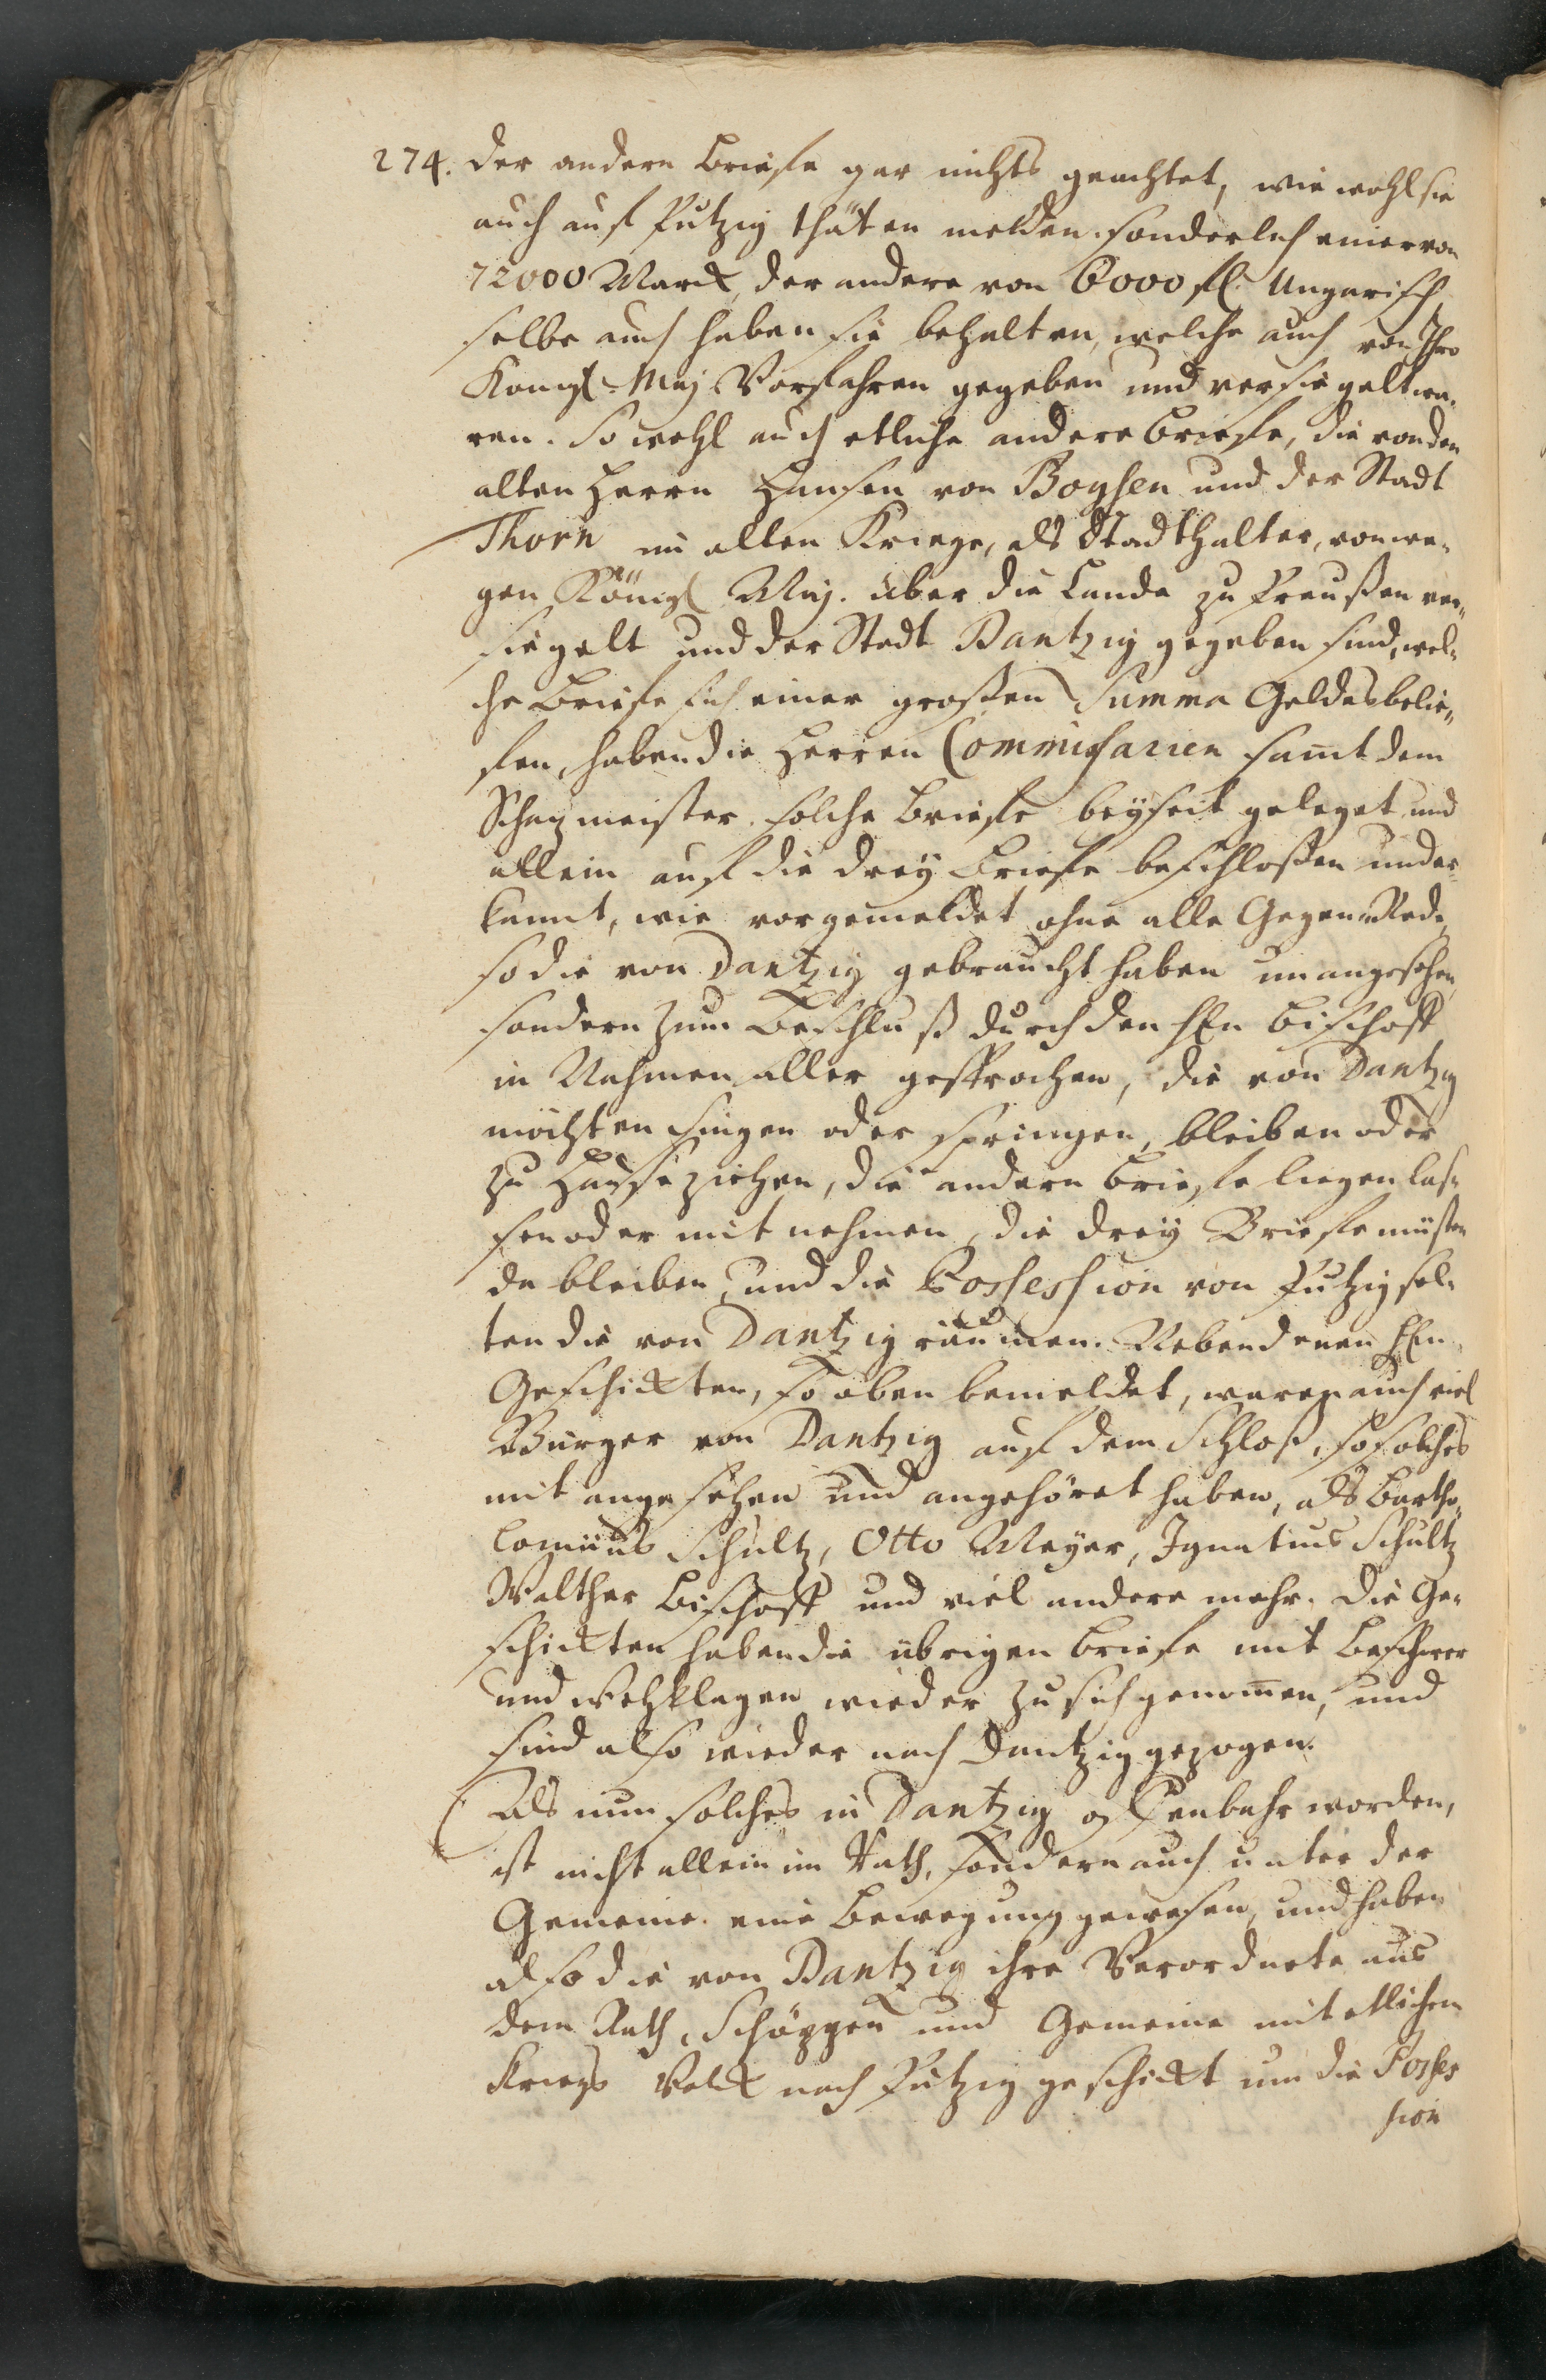 274. der andern Briefe gar nichts geachtet, wie wohl sie
auch auf Putzig thäten melden. sonderlich einer von
72000 Marck, der andere von 6000 fl. Ungarisch,
selbe auch haben sie behalten, welche auch von Ihro
Königl. Maj. Vorfahren gegeben und versiegelt wa-
ren. So wohl auch etliche andere Briefe, die von dem
alten Herrn Hansen von Baysen und der Stadt
Thorn im alten Kriege, als Stadthalter, von we-
gen Königl. Maj. über die Lande zu Preußen ver-
siegelt und der Stadt Dantzig gegeben sind, wel-
che Briefe sich einer großen Summa Geldes belie-
fen, haben die Herren Commissarien samt dem
Schatzmeister solche Briefe beyseit geleget und
allein auf die drey Briefe beschloßen und er-
kannt, wie vorgemeldet ohne alle Gegen-Rede,
so die von Dantzig gebraucht haben unangesehen,
sondern zum Beschluß durch den HEn Bischoff
in Nahmen aller gesprochen, die von Dantzig
möchten singen oder springen, bleiben oder
zu Hause ziehen, die andern Briefe liegen las-
sen oder mit nehmen, die drey Briefe müsten
da bleiben, und die Possession von Putzig sol-
ten die von Dantzig räumen. Neben denen HEn
Geschickten, so oben bemeldet, waren auch viel
Bürger von Dantzig auf dem Schloß, so solches
mit angesehen und angehöret haben, als Bartho-
lomäus Schultz, Otto Meyer, Ignatius Schultz
Walther Bischoff und viel andere mehr. Die Ge-
schickten haben die übrigen Briefe mit Beschwer
und Wehklagen wieder zu sich genommen, und
sind also wieder nach Dantzig gezogen.
Als nun solches in Dantzig offenbahr worden,
ist nicht allein im Rath, sondern auch unter der
Gemeine eine Bewegung gewesen, und haben
also die von Dantzig ihre Verordnete aus
dem Rath, Schöppen und Gemeine mit etlichem
Kriegs Volck nach Putzig geschickt um die Posses
sion